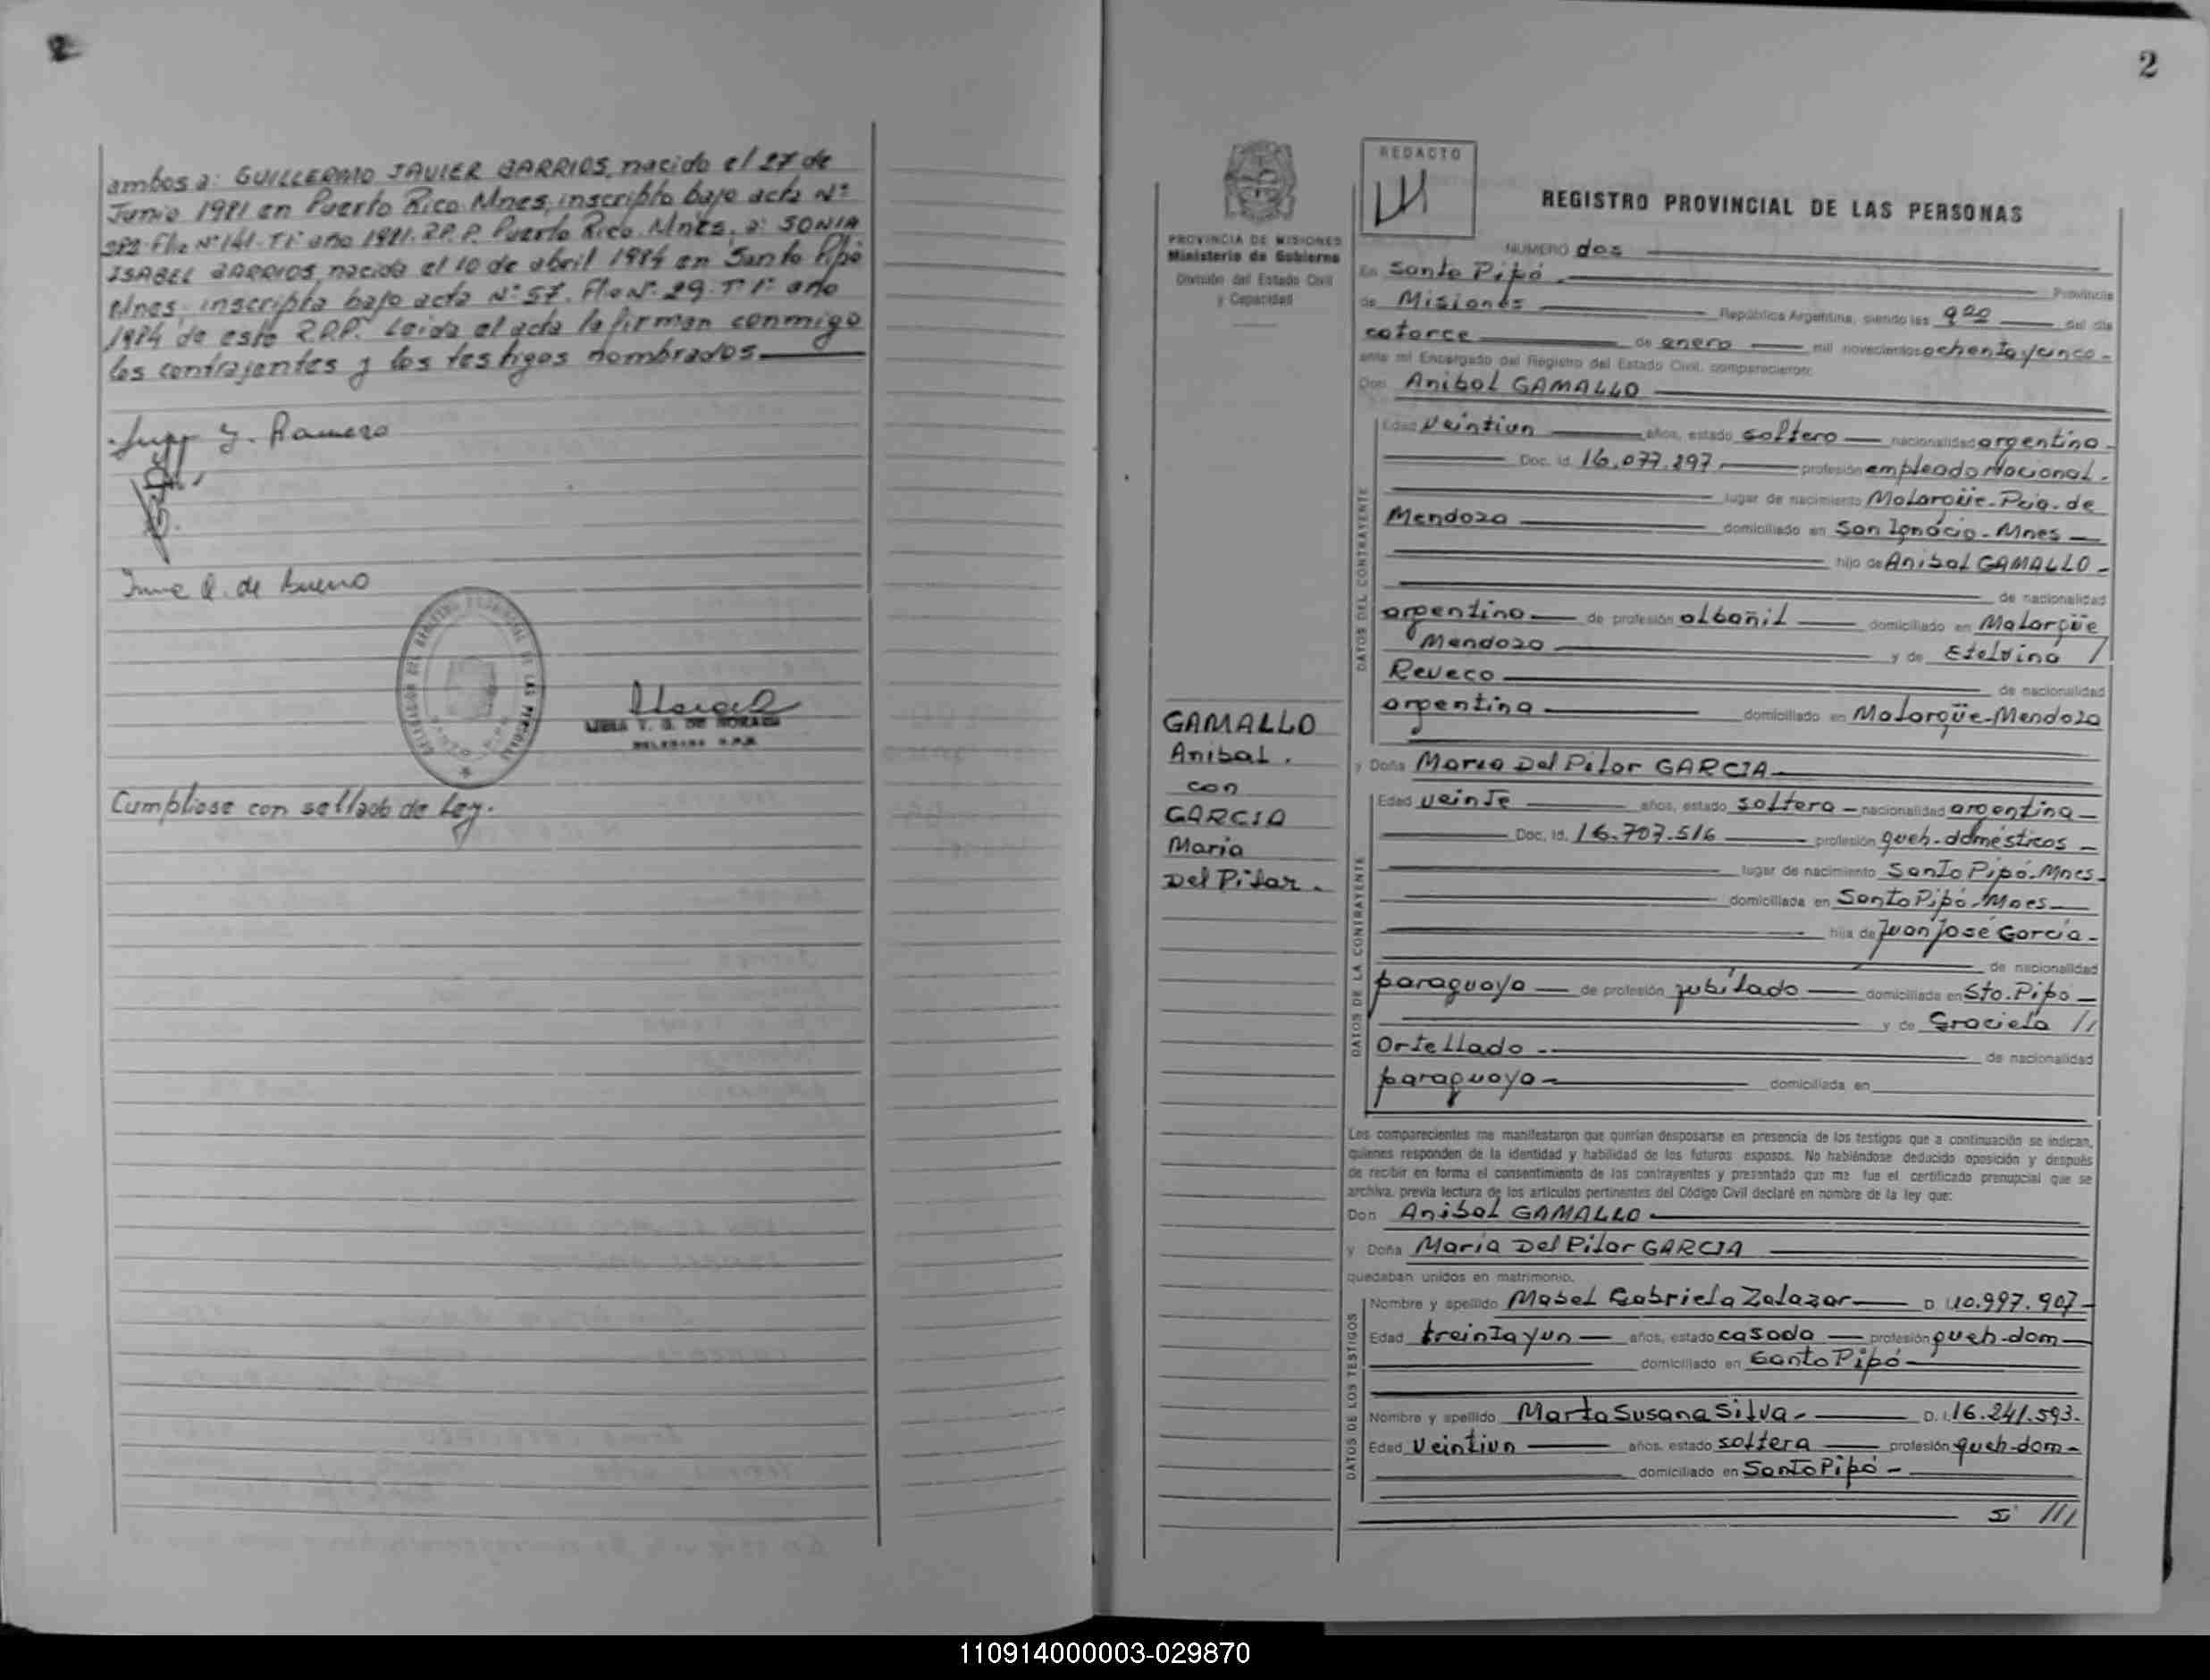 2
ambos a: GUILLERMO JAVIER BARRIOS, nacido el 27 de
Junio 1981 en Puerto Rico Mnes, inscripto bajo acta Nº
Flio Nº 141. Tº 1º año 1981. R.P.P. Puerto Rico. Mnes, a: SONIA
ISABEL BARRIOS, nacida el 10 de abril 1984 en Santo Pipó
Mnes, inscripta bajo acta Nº 57. Flio Nº 29. Tº 1º año
1984 de este R.P.P. Leida el acta la firman conmigo
los contrajentes y los testigos nombrados.
Y. Romero
Q. de Bueno
Cumpliose con sellado de Ley.
2
REDACTO
REGISTRO PROVINCIAL DE LAS PERSONAS
PROVINCIA DE MISIONES
Ministerio de Gobierno
División del Estado Civil
y Capacidad
NUMERO dos
En Santo Pipó. Provincia
de Misiones República Argentina, siendo las 9 00 del día
catorce de enero mil novecientos ochenta y cinco -
ante mi Encargado del Registro del Estado Civil, comparecieron:
Don Anibal GAMALLO
DATOS DEL CONTRAYENTE
Edad Veintiun años, estado soltero nacionalidad argentina -
Doc. Id. 16.077.297. profesión empleado Nacional.
lugar de nacimiento Malargüe - Pcia. de
Mendoza domiciliado en San Ignácio - Mnes
hijo de Anibal GAMALLO -
de nacionalidad
argentino de profesión albañil domiciliado en Malargüe
Mendoza y de Etelvina /
Reveco de nacionalidad
argentina domiciliado en Malargüe - Mendoza
GAMALLO
Anibal.
con
GARCIA
Maria
Del Pilar.
y Doña Maria Del Pilar GARCIA
DATOS DE LA CONTRAYENTE
Edad veinte años, estado soltera - nacionalidad argentina
Doc. Id. 16.707.516 profesión queh. domésticos -
lugar de nacimiento Santo Pipó. Mnes.
domiciliada en Santo Pipó - Mnes
hija de Juan José Garcia -
de nacionalidad
paraguaya de profesión jubilado domiciliada en Sto. Pipó
y de Graciela //
Ortellado - de nacionalidad
paraguaya - domiciliada en
Los comparecientes me manifestaron que querían desposarse en presencia de los testigos que a continuación se indican,
quienes responden de la identidad y habilidad de los futuros esposos. No habiéndose deducido oposición y después
de recibir en forma el consentimiento de los contrayentes y presentado que me fue el certificado prenupcial que se
archiva, previa lectura de los artículos pertinentes del Código Civil declaré en nombre de la ley que:
Don Anibal GAMALLO
y Doña Maria Del Pilar GARCIA
quedaban unidos en matrimonio.
DATOS DE LOS TESTIGOS
Nombre y apellido Mabel Gabriela Zalazar D. I. 10.997.907
Edad treinta y un años, estado casada profesión queh-dom
domiciliado en Santo Pipó
Nombre y apellido Marta Susana Silva. D. I. 16.241.593.
Edad Veintiun años, estado soltera profesión queh-dom -
domiciliado en Santo Pipó -
///
110914000003-029870